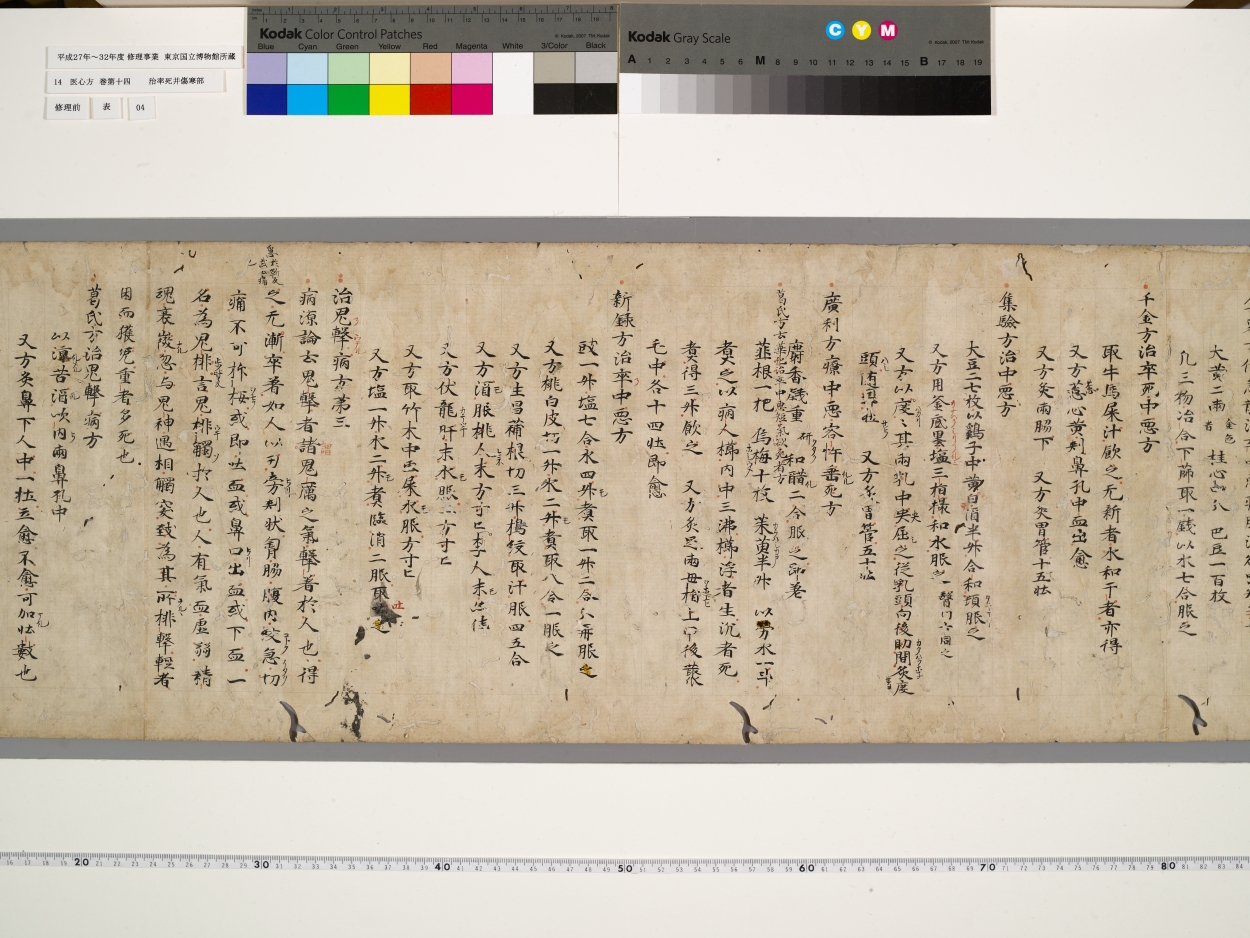 平成27年～32年度 修理事業 東京国立博物館所蔵
14 医心方 巻第十四 治卒死并傷寒部
修理前 表 04
Kodak Color Control Patches
© Kodak, 2007 TM: Kodak
Blue Cyan Green Yellow Red Magenta White 3/Color Black
Kodak Gray Scale
C Y M
© Kodak, 2007 TM: Kodak
A 1 2 3 4 5 6 M 8 9 10 11 12 13 14 15 B 17 18 19
大黄二兩 桂心 巴豆一百枚
凡三物冶合下篩取一錢以水七合服之
千金方治卒死中惡方
取牛馬屎汁飲之无新者水和干者亦得
又方葱心黄刺鼻孔中血出愈
又方灸兩脇下 又方灸胃管十五壮
集驗方治中惡方
大豆二七枚以鷄子中黄白酒半升合和頓服之
又方用釜底墨塩三指撮和水服之
又方以度其兩乳中央屈之從乳頭向後肋間灸度
頭随壮 又方灸胃管五十壮
廣利方療中惡客忤垂死方
麝香錢重研和醋二合服之即差
葛氏方云
韮根一把 烏梅十枚 茱萸半升 以勞水一斗
煮之以病人櫛内中三沸櫛浮者生沉者死
煮得三升飲之 又方灸足兩母指上甲後聚
毛中各十四壮即愈
新録方治卒中惡方
豉一升塩七合水四升煮取一升二合分再服之
又方桃白皮切一升水二升煮取八合一服之
又方生昌蒲根切三升搗絞取汁服四五合
又方酒服桃人末方寸匕李人末亦佳
又方伏龍肝末水服方寸匕
又方取竹木中虫屎水服方寸匕
又方塩一升水二升煮臨消二服取吐之
治鬼擊病方第三
病源論云鬼擊者諸鬼厲之氣擊著於人也得
之无漸卒著如人以刀旁刺状胷脇腹内絞急切
痛不可抑按或即吐血或鼻口出血或下血一
名為鬼排言鬼排觸於人也人有氣血虚弱精
魂衰微忽与鬼神遇相觸突致為其所排擊輕者
困而獲免重者多死也
葛氏方治鬼擊病方
以淳苦酒吹内兩鼻孔中
又方灸鼻下人中一壮立愈不愈可加壮數也
20 30 40 50 60 70 80